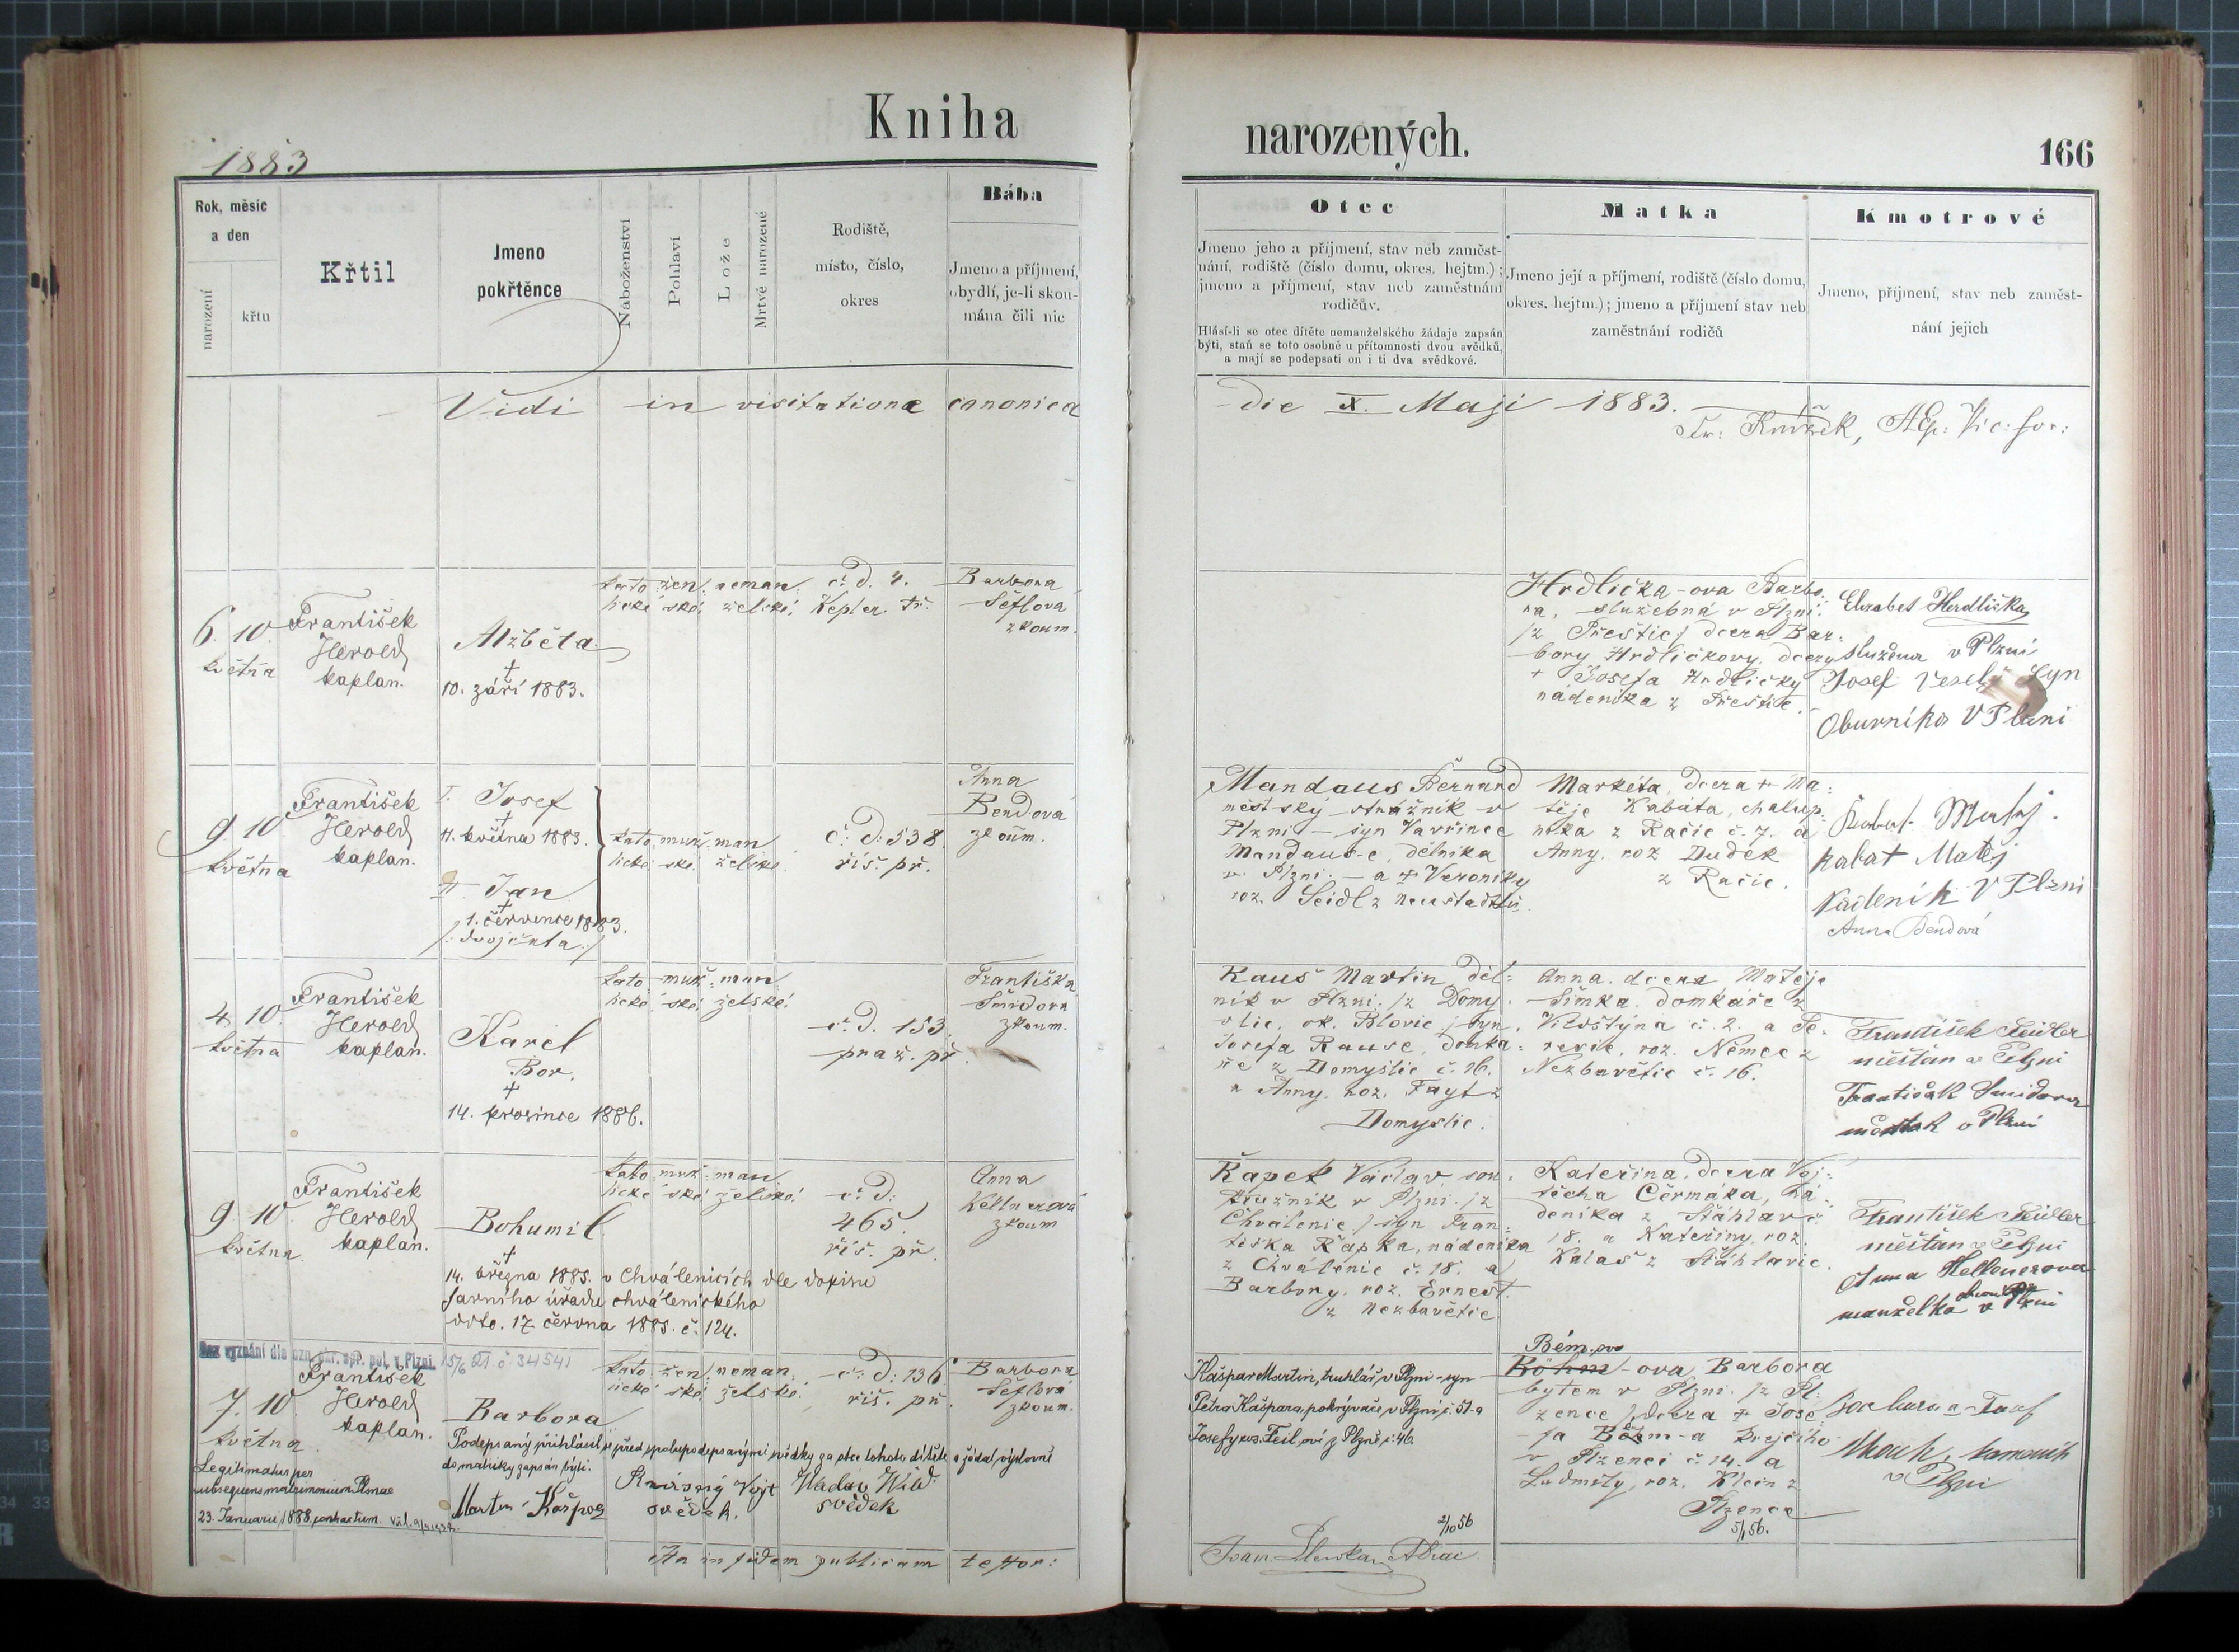 Kniha
narozených.
166
1883
Rok, měsíc
a den
narození
křtu
Křtil
Jmeno
pokřtěnce
Náboženství
Pohlaví
Lože
Mrtvě narozené
Rodiště,
místo, číslo,
okres
Bába
Jmeno a příjmení,
obydlí, je-li skou-
mána čili nic
Otec
Jmeno jeho a příjmení, stav neb zaměst-
nání, rodiště (číslo domu, okres. hejtm.);
jmeno a příjmení, stav neb zaměstnání
rodičův.
Hlásí-li se otec dítěte nemanželského žádaje zapsán
býti, staň se toto osobně u přítomnosti dvou svědků,
a mají se podepsati on i ti dva svědkové.
Matka
Jmeno její a příjmení, rodiště (číslo domu,
okres. hejtm.); jmeno a příjmení stav neb
zaměstnání rodičů
Kmotrové
Jmeno, příjmení, stav neb zaměst-
nání jejich
Vidi in visitatione canonica
die X. Maji 1883.
6. 10.
května
František
Herold
kaplan.
Alžběta
†
10. září 1883.
kato- žen- neman-
lické ské želské
č. d. 4.
Kepler. tř.
Barbora
Šeflová
zkoum.
Hrdlička-ova Barbo-
ra, služebná v Plzni
/z Přeštic/ dcera Bar-
bory Hrdličkovy, dcery
† Josefa Hrdličky
nádeníka z Přeštic.
Elsabet Herdlička
služena v Plzni
Josef Veselý Syn
Oburnika V Plzni
9 10
května
František
Herold
kaplan.
I. Josef
†
11. května 1883.
II. Jan
†
1. července 1883.
/: dvojčata :/
kato- muž- man
lické ské želské
č. d. 538.
říš. př.
Anna
Bendová
zkoum.
Mandaus Bernard
městský strážník v
Plzni — syn Vavřince
Mandaus-e, dělníka
v Plzni — a † Veroniky
roz. Seidl z Neustadtlu.
Markéta, dcera † Ma-
těje Kabáta, chalup-
níka z Račic č. 7. a
Anny, roz. Duděk
z Račic.
kabat Matěj
Nadeník V Plzni
Anna Bendová
4 10.
května
František
Herold
kaplan.
Karel
Bor.
†
14. prosince 1886.
kato- muž- man
lické ské želské
č. d. 153.
praž. př.
Františka
Šmídová
zkoum.
Kauš Martin, děl-
ník v Plzni. /z Domy-
slic, ok. Blovic / syn
Josefa Kauše, domka-
ře z Domyslic č. 16.
a Anny, roz. Fayt z
Domyslic.
Anna, dcera Matěje
Šimka, domkáře z
č. 2. a Te-
rezie, roz. Němec z
Nezbavětic č. 16.
František Feidler
měštan v Plzni
v Plzni
9 10.
května
František
Herold
kaplan.
Bohumil
†
14. března 1885. v Chválenicích dle dopisu
farního úřadu chválenického
ddto. 17 června 1885. č. 124.
kato- muž- man
lické ské želské
č. d.
465.
říš. př.
Anna
Kellnerová
zkoum
Řapek Václav, sou-
stružník v Plzni /z
Chválenic / syn Fran-
tiška Řapka, nádeníka
z Chválenic č. 18. a
Barbory, roz. Ernest.
z Nezbavětic
Kateřina, dcera Voj-
těcha Čermáka, ná-
deníka z Šťáhlav č.
18. a Kateřiny, roz.
Kalaš z Šťáhlavic.
František Feidler
měštan v Plzni
Anna Kellnerova
manželka v Plzni
Bez vyznání dle ozn. okr. spr. pol. v Plzni 15/6 21. č. 34541
7. 10
května
František
Herold
kaplan.
Barbora
kato- žen- neman-
lické ské želské
č. d. 136
říš. př.
Barbora
Šeflová
zkoum.
Podepsaný přihlásil se před spolupodepsanými svědky za otce tohoto dítěte a žádal výslovně
do matriky zapsán býti.
Legitimatus per
subsequens matrimonium Plznae
23. Januarii 1888. contractum.
Martin Kašpar
Vojt
svědek.
svědek
Kašpar Martin, truhlář, v Plzni - syn
Petra Kašpara, pokrývače, v Plzni č. 51 a
Josefy roz. Feil-ovi z Plzně č. 46.
2/10 56
Bém-ova
Böhm-ova Barbora
bytem v Plzni. /z Pl-
zence / dcera † Jose-
fa Böhm-a krejčího
v Plzenci č. 14. a
Ludmily, roz. Klein z
Plzence
5/1 56.
v Plzni
Ita in fidem publicam testor: